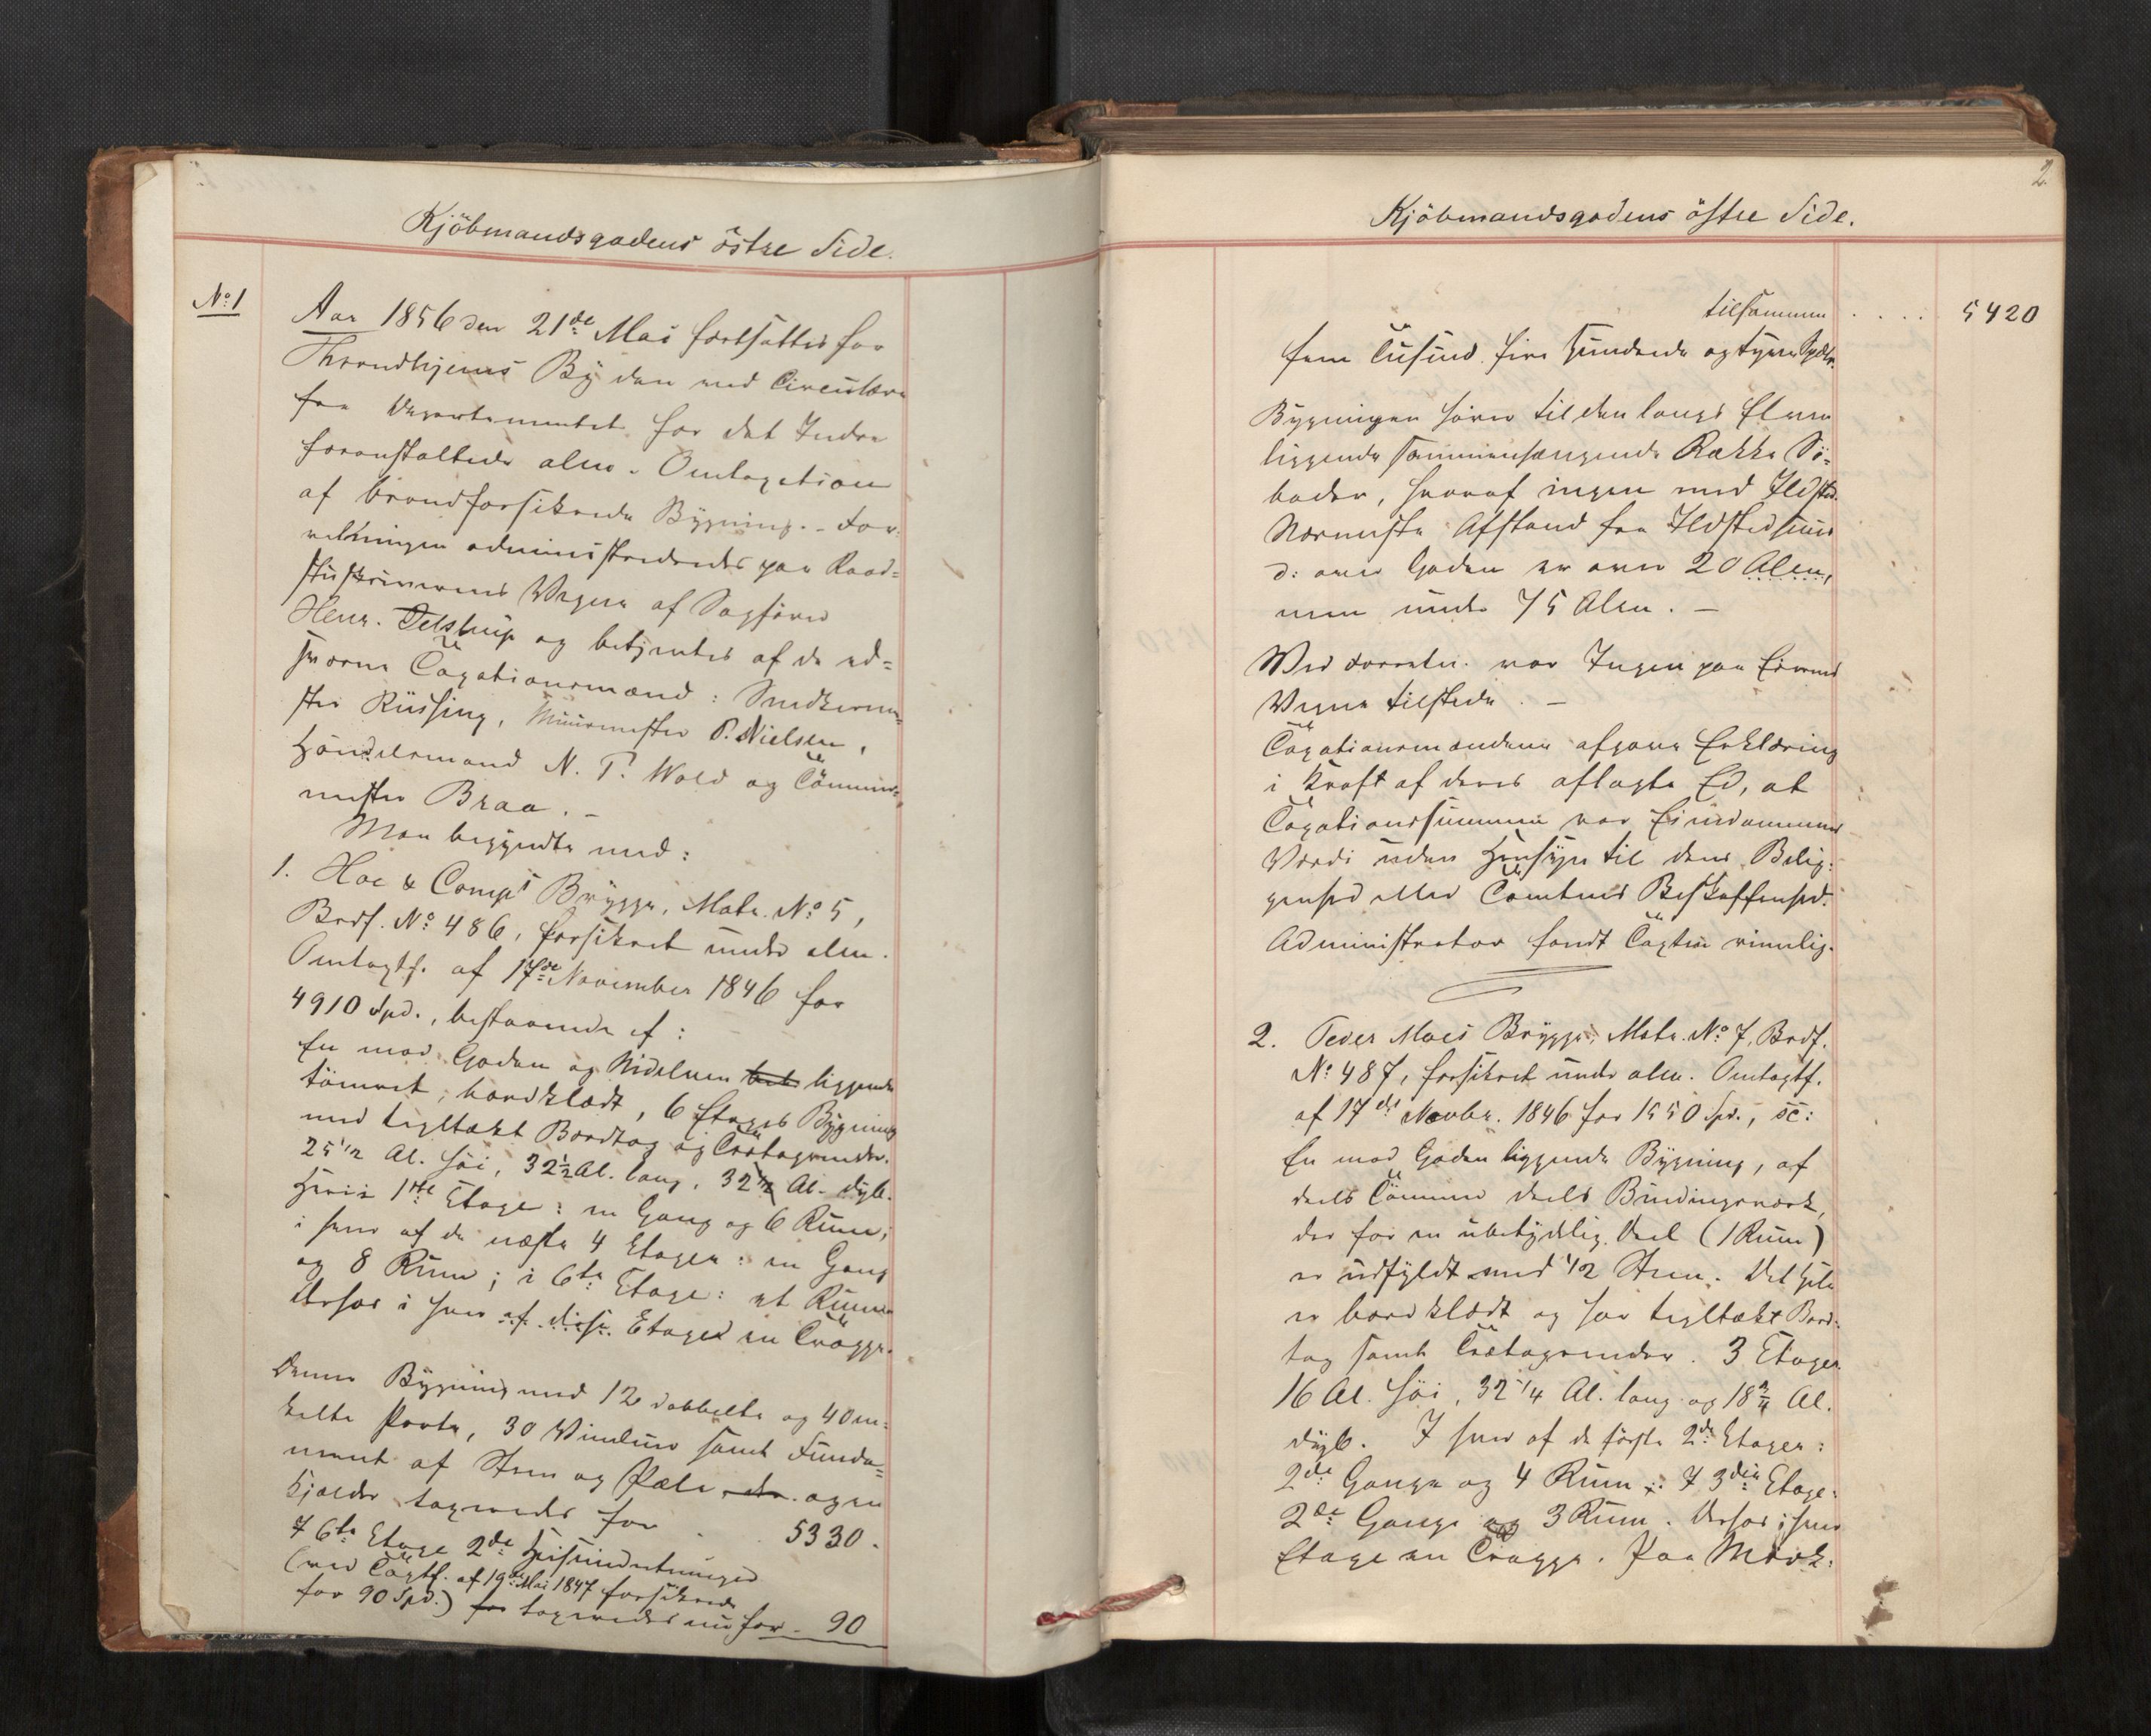 Kjöbmandsgadens östre Side.
No 1
Aar 1856 den 21de Mai fortsattes for
Throndhjems By den ved Circulære
fra Departementet for det Indre
foranstaltede alm. Omtaxation
af brandforsikrede Bygning. - For-
retningen administreredes paa Raad=
stuskriverens Vegne af Sagfører
Henr. Telstrup og betjentes af de ed=
svorne Taxationsmænd: Snedkerme=
ster Rüssing, Muurmester P. Nielsen,
Handelsmand N. T. Wold og Tömmer=
mester Braa. -
Man begyndte med:
1. Hoe & Comps Brygge, Matr. No 5,
Brdf. No 486, forsikret under alm.
Omtaxtf. af 17de November 1846 for
4910 Spd., bestaaende af:
En mod Gaden og Nidelven liggende
tömret, bordklædt, 6 Etages Bygning
med tegltækt Bordtag og Trætagrender.
25 1/2 Al. höi, 32 1/2 Al. lang, 32 1/2 Al. dyb.
Heri i 1ste Etage: en Gang og 6 Rum;
i hver af de næste 4 Etager: en Gang
og 8 Rum; i 6te Etage: et Rum
Derhos i hver af disse Etager en Trappe.
Denne Bygning med 12 dobbelte og 4 en=
kelte Porte, 30 Vinduer samt Funda=
ment af Steen og Pæle og en
Kjælder taxeredes for . 5330.
I 6te Etage 2de Heiseindretninger
(ved Taxtf. af 19de Mai 1847 forsikrede
for 90 Spd.) taxeredes nu for - 90
2.
Kjöbmandsgadens östre Side.
tilsammen .... 5420
fem Tusind fire Hundrede og tyve Spdlr.
Bygningen hörer til den langs Elven
liggende sammenhængende Række Sö=
boder, hvoraf ingen med Ildsted.
Nærmeste Afstand fra Ildstedhuus
ɔ: over Gaden er over 20 Alen,
men under 75 Alen. -
Ved Forretn. var Ingen paa Eierens
Vegne tilstede. -
Taxationsmændene afgave Erklæring
i Kraft af deres aflagte Ed, at
Taxationssummen var Eiendommens
Værdi uden Hensyn til dens Belig=
genhed eller Tomtens Beskaffenhed.
Administrator fandt Taxten rimelig.
2. Peder Moes Brygge, Matr. No 7, Brdf.
No 487, forsikret under alm. Omtaxtf.
af 17de Novbr. 1846 for 1550 Spd., sc:
En mod Gaden liggende Bygning, af
deels Tömmer deels Bindingsværk,
der for en ubetydelig Deel (1 Rum)
er udfyldt med 1/2 Steen. Det Hele
er bordklædt og har tegltækt Bord=
tag samt Trætagrender. 3 Etager
16 Al. höi, 32 1/4 Al. lang og 18 3/4 Al.
dyb. I hver af de förste 2de Etager:
2de Gange og 4 Rum; I 3die Etage:
2de Gange og 3 Rum. Derhos i hver
Etage en Trappe. Paa Mörk=